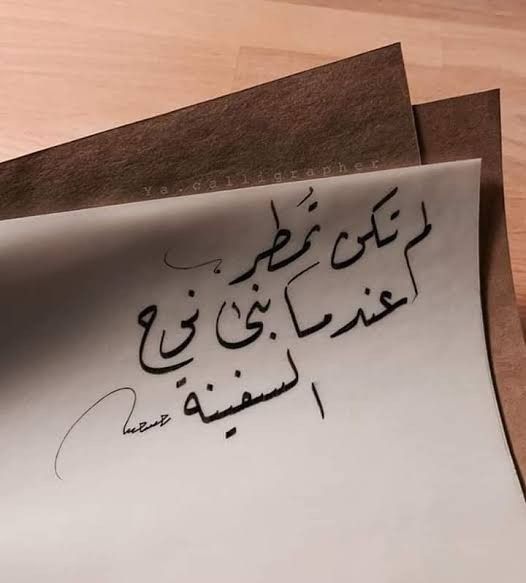 Ya.calligrapher
لم تكن تُمطر
عندما بنى نوح
السفينة